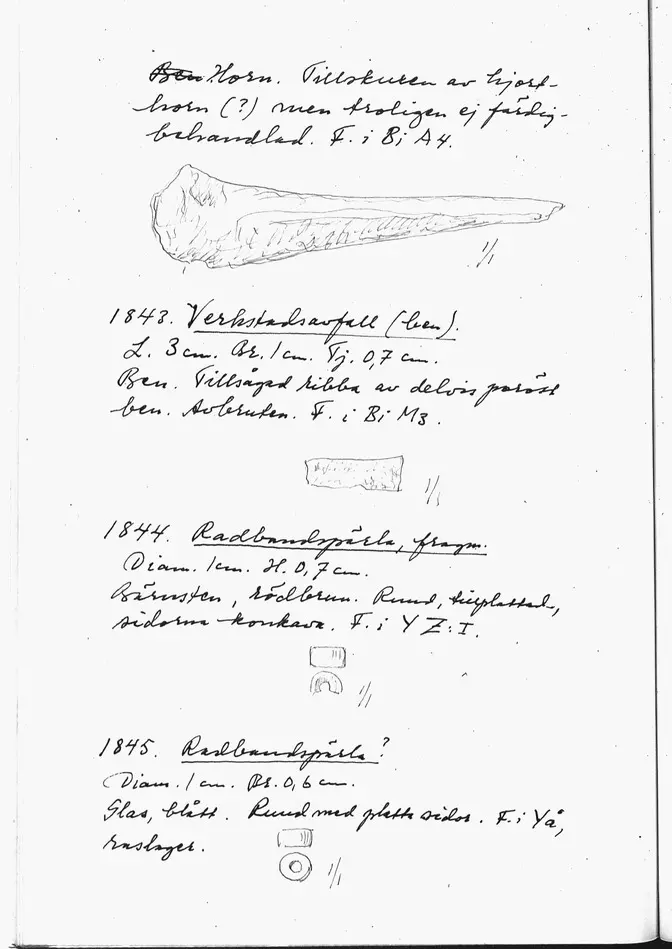 ~~Ben~~ Horn. Tillskuren av hjort-
horn (?) men troligen ej färdig-
behandlad. F. i Bi A4.
1/1
1843. Verkstadsavfall (ben).
L. 3 cm. Br. 1 cm. Tj. 0,7 cm.
Ben. Tillsågad ribba av delvis poröst
ben. Avbruten. F. i Bi M3.
1/1
1844. Radbandspärla, fragm.
Diam. 1 cm. H. 0,7 cm.
Bärnsten, rödbrun. Rund, tillplattad,
sidorna konkava. F. i Y Z:I.
1/1
1845. Radbandspärla?
Diam. 1 cm. Br. 0,6 cm.
Glas, blått. Rund med platta sidor. F. i Yå,
raslager.
1/1